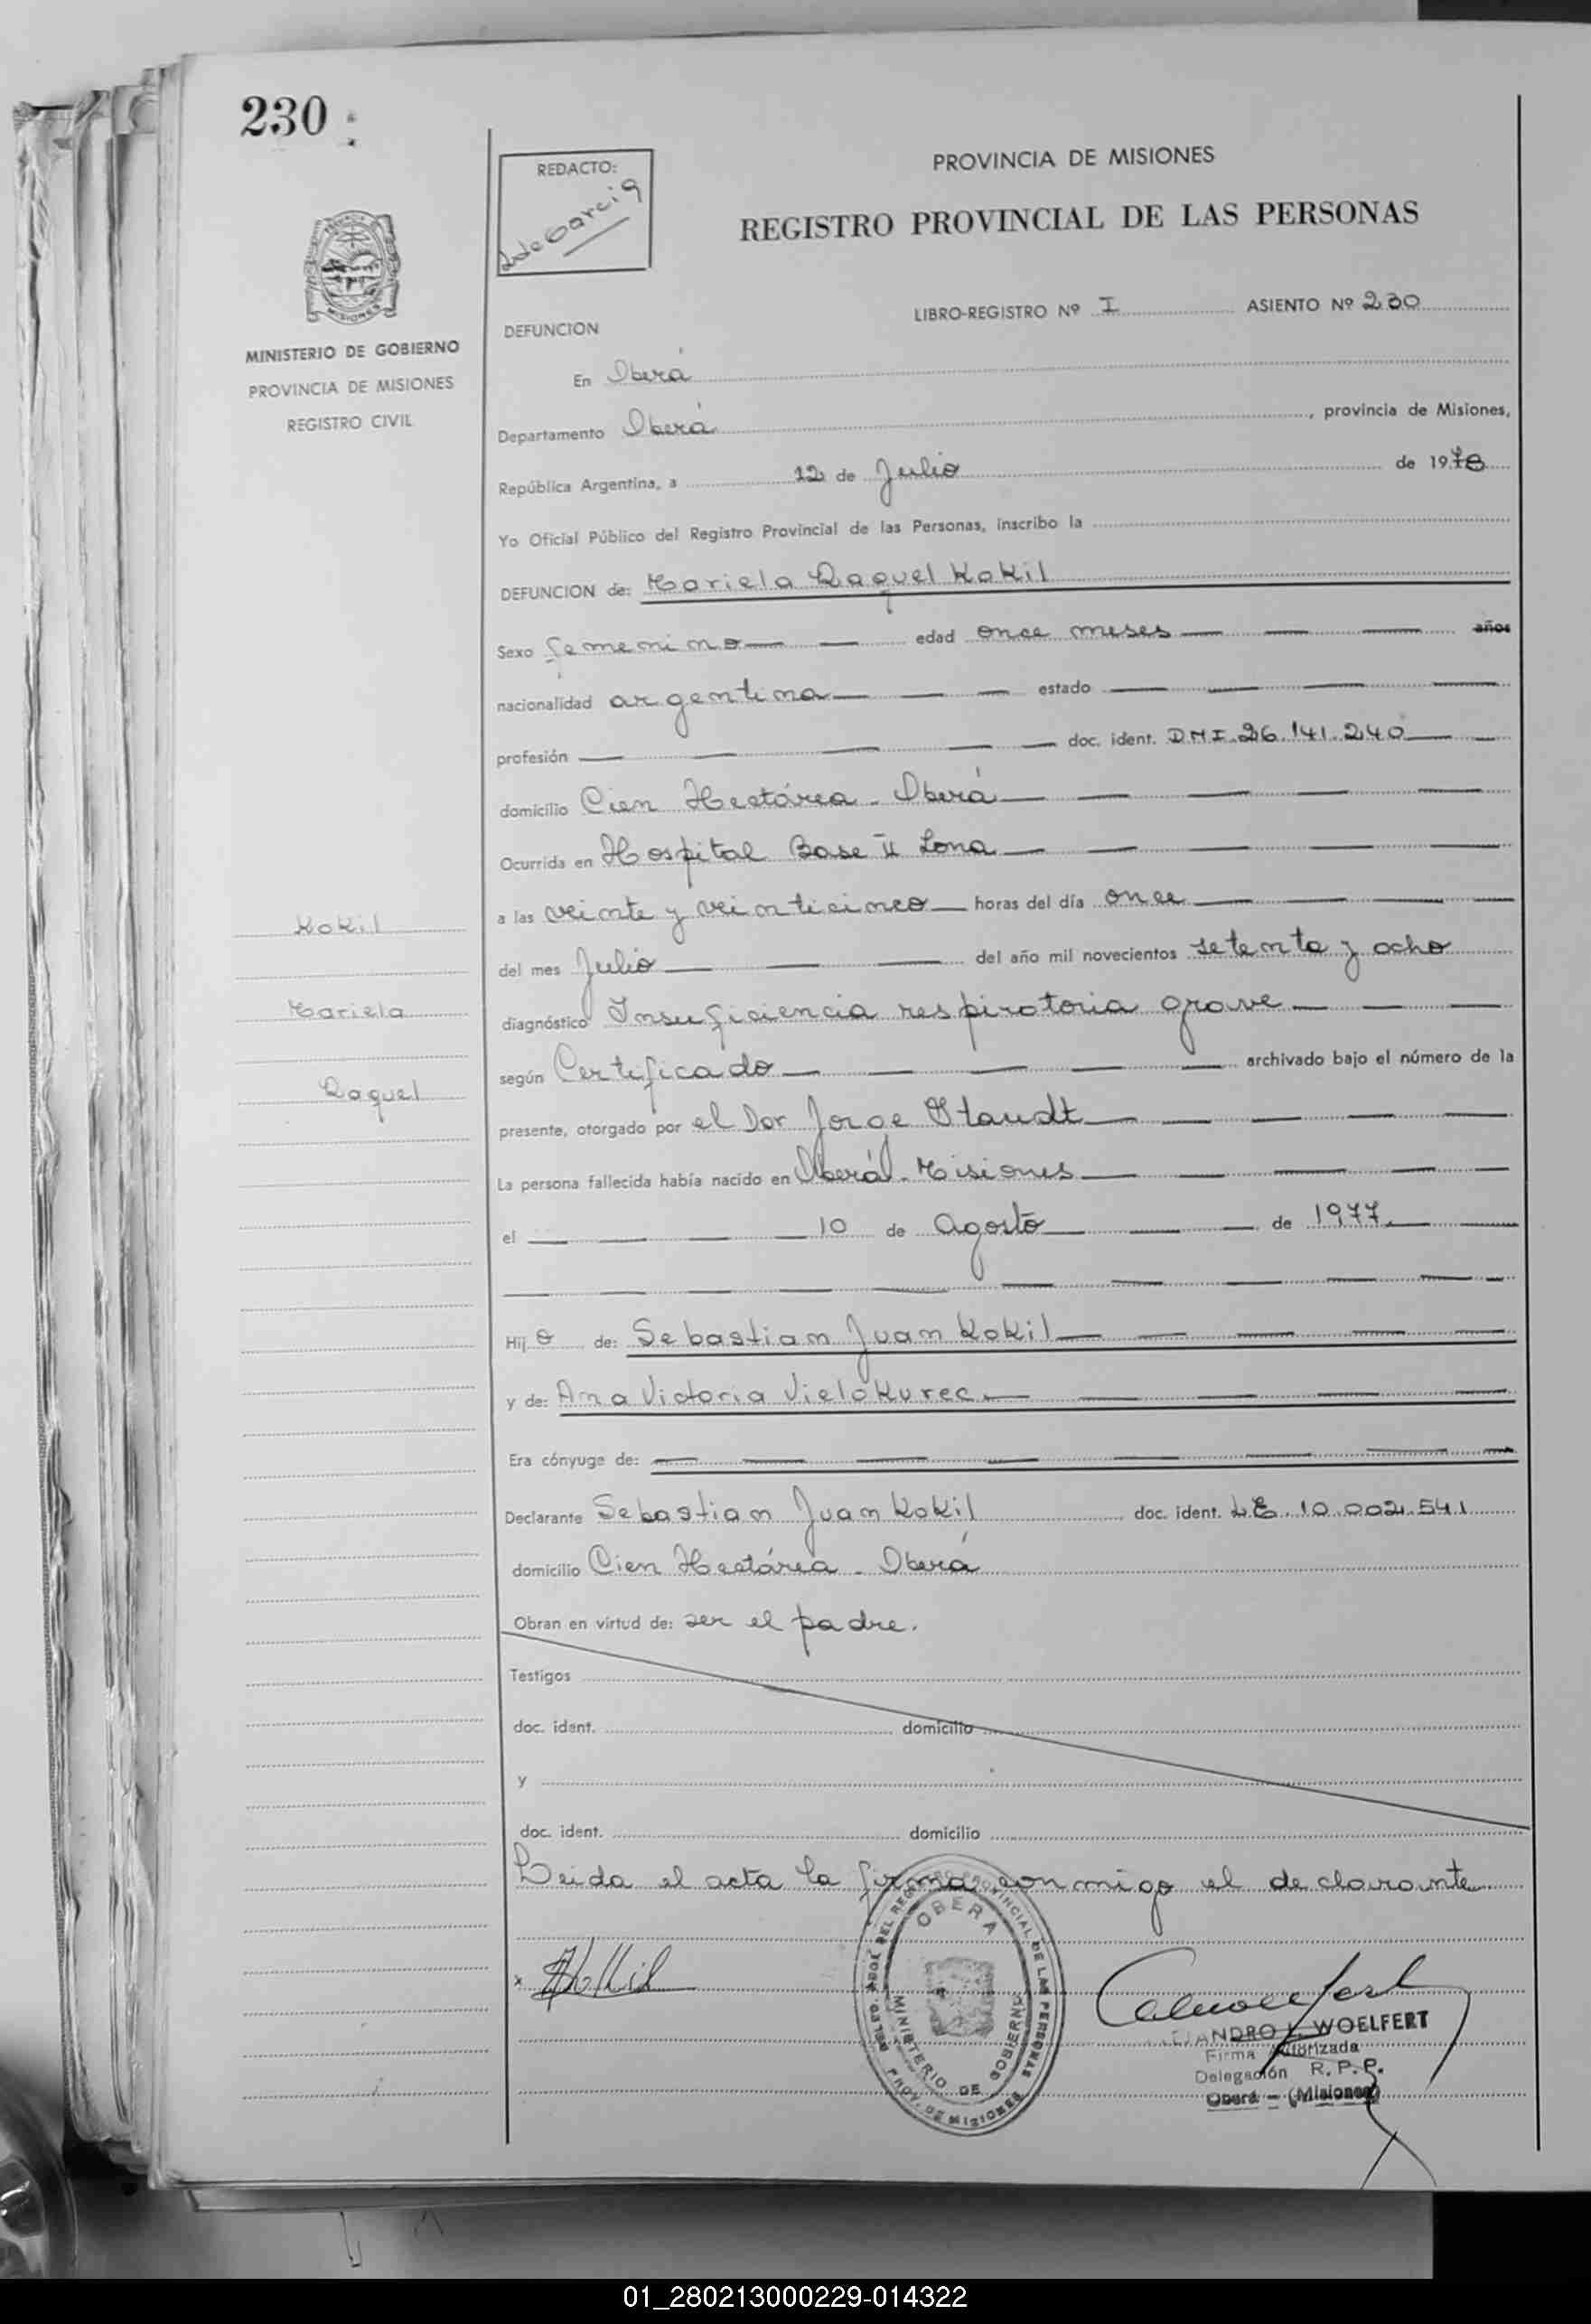 230
REDACTO:
PROVINCIA DE MISIONES
REGISTRO PROVINCIAL DE LAS PERSONAS
LIBRO-REGISTRO Nº I ASIENTO Nº 230
DEFUNCION
MINISTERIO DE GOBIERNO
PROVINCIA DE MISIONES
REGISTRO CIVIL
En Oberá
Departamento Oberá, provincia de Misiones,
República Argentina, a 12 de Julio de 1978
Yo Oficial Público del Registro Provincial de las Personas, inscribo la
DEFUNCION de: Mariela Raquel Kokil
Sexo femenino edad once meses años
nacionalidad argentina estado
profesión doc. ident. DNI 26.141.240
domicilio Cien Hectárea - Oberá
Ocurrida en Hospital Base II Zona
a las veinte y veinticinco horas del día once
del mes Julio del año mil novecientos setenta y ocho
diagnóstico Insuficiencia respiratoria grave
según Certificado archivado bajo el número de la
presente, otorgado por el Dor Jorge Staudt
La persona fallecida había nacido en Oberá - Misiones
el 10 de Agosto de 1977
Kokil
Mariela
Raquel
Hij a de: Sebastian Juan Kokil
y de: Ana Victoria Vielokurec
Era cónyuge de:
Declarante Sebastian Juan Kokil doc. ident. LE. 10.002.541
domicilio Cien Hectárea - Oberá
Obran en virtud de: ser el padre.
Testigos
doc. ident. domicilio
y
doc. ident. domicilio
Leida el acta la firma conmigo el declarante
OBERA
MINISTERIO DE GOBIERNO
PROV. DE MISIONES
WOELFERT
Firma Autorizada
Delegación R.P.P.
Oberá - (Misiones)
01_280213000229-014322